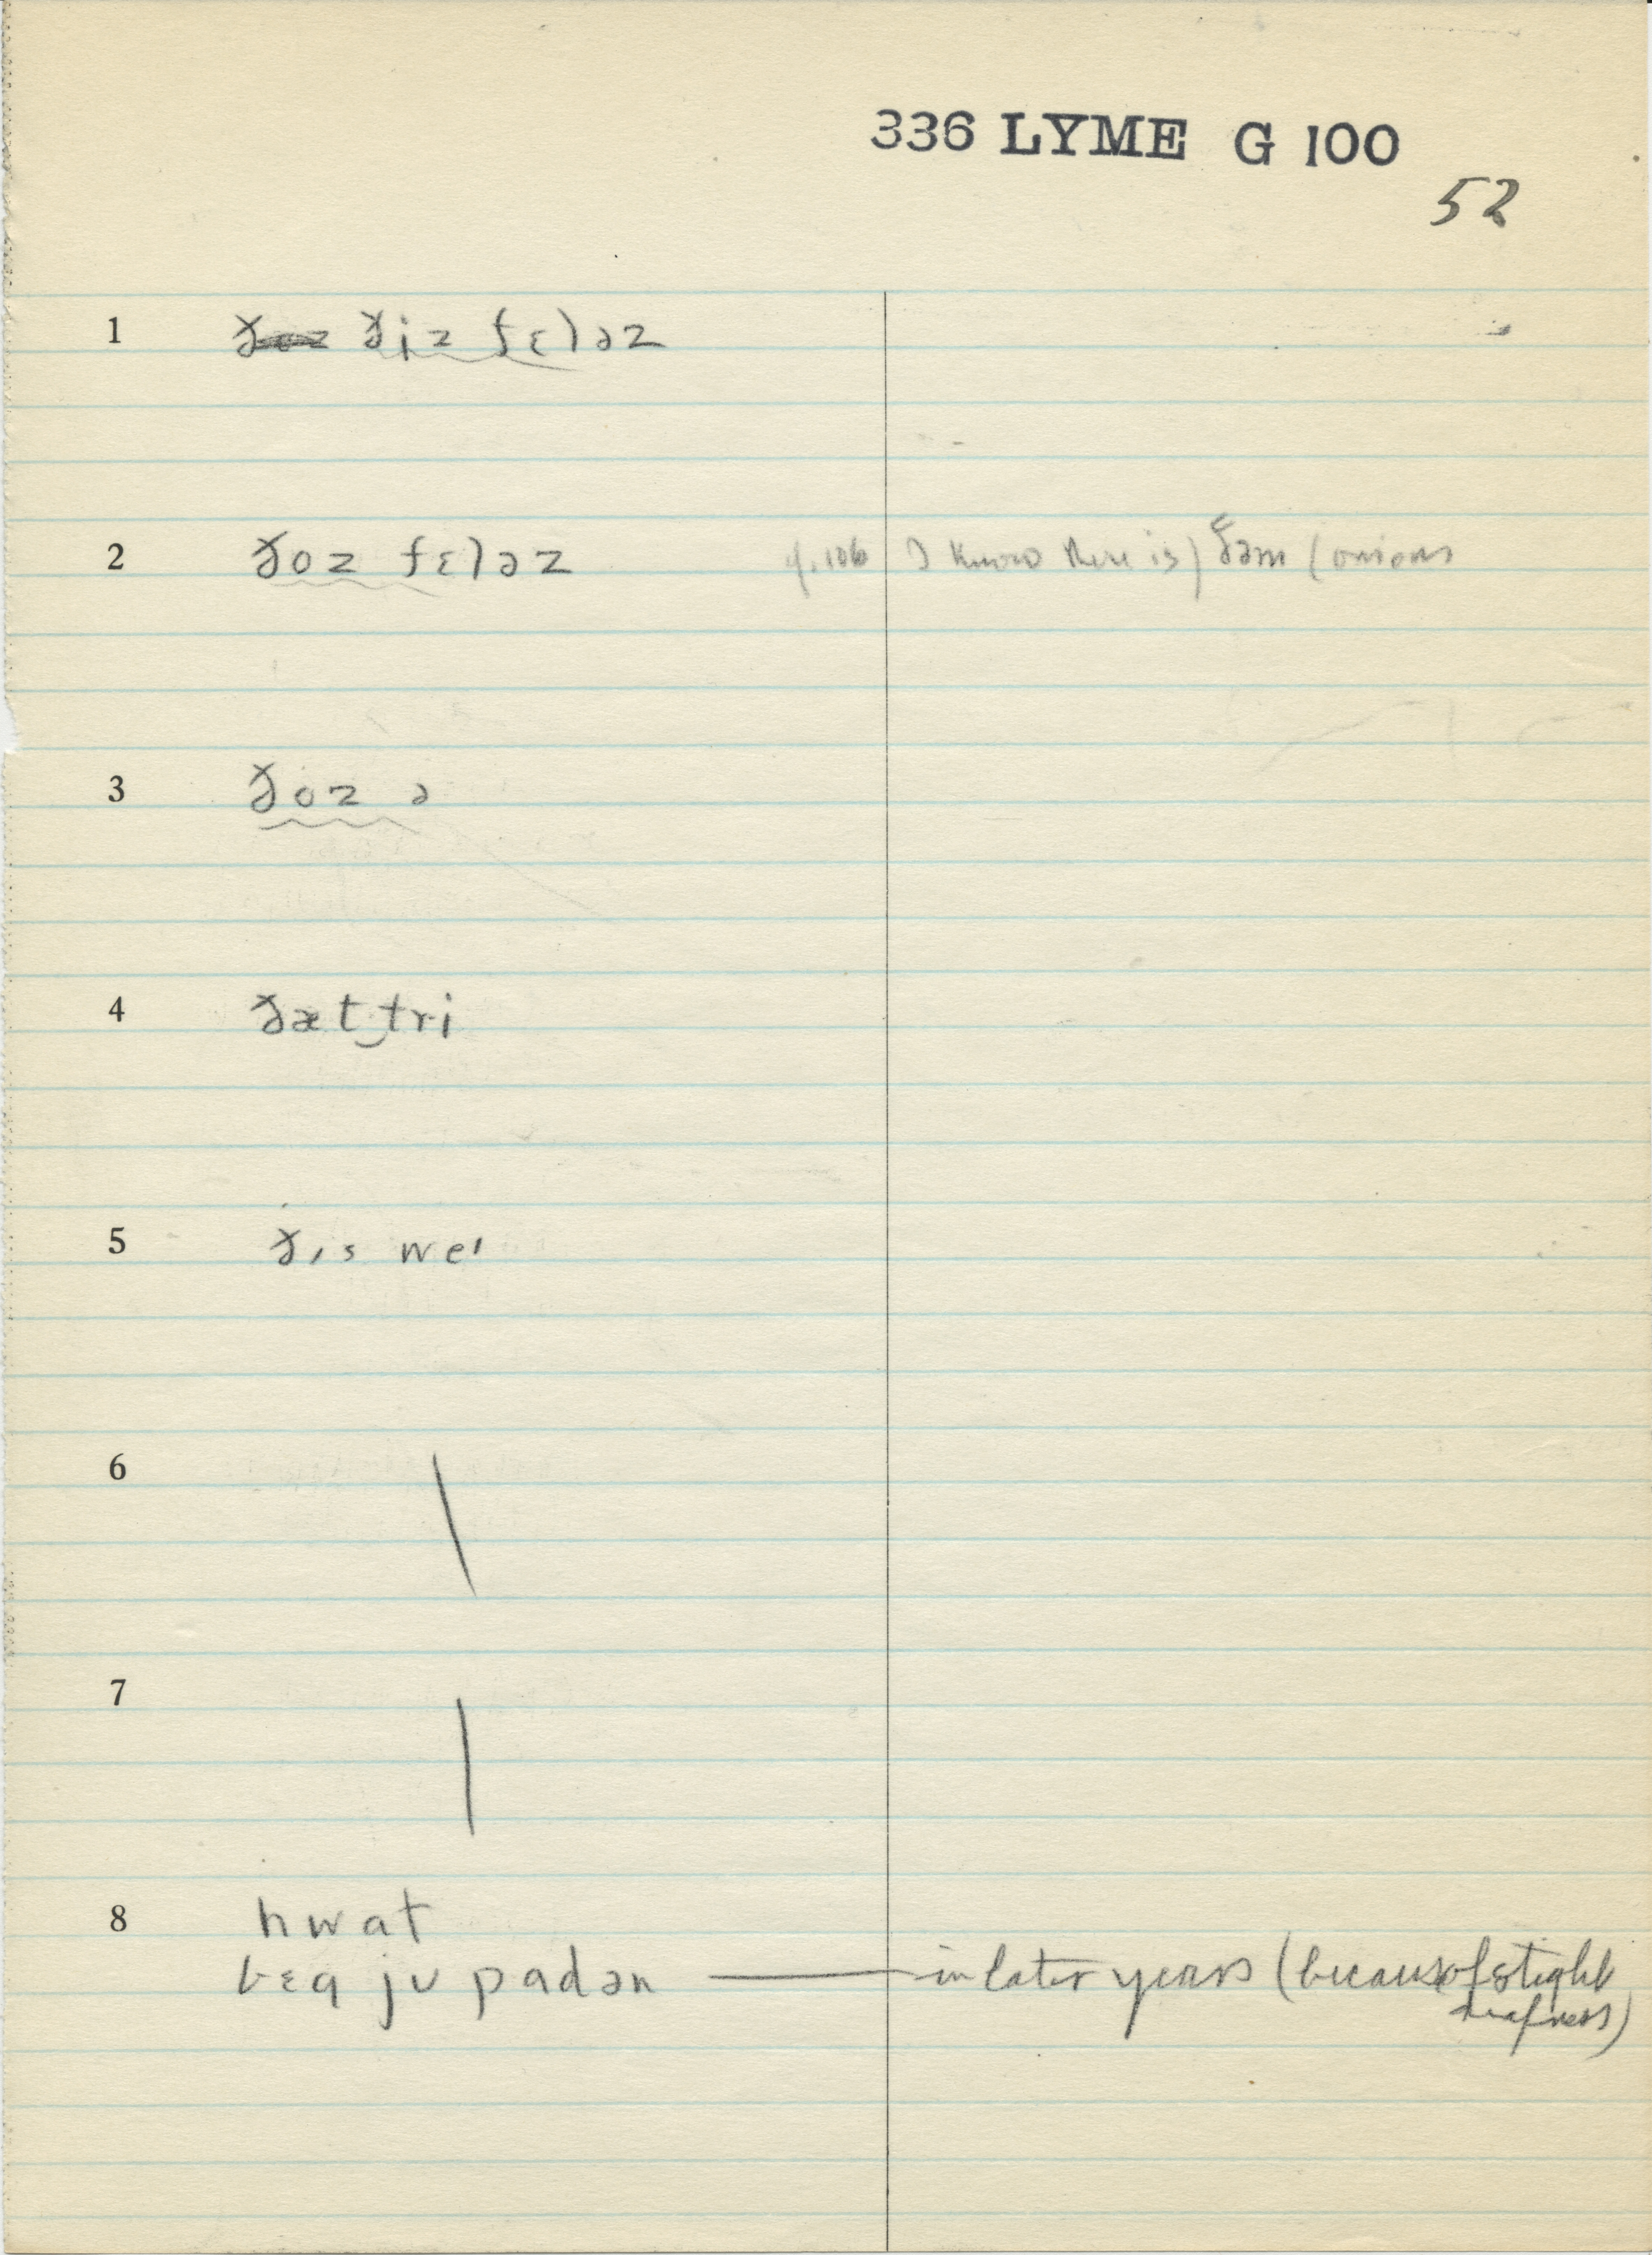 336 LYME G 100
52
1 ðoz ðiz fɛləz
2 ðoz fɛləz cf. 106 I know there is) ðəm (onions
3 ðoz ə
4 ðæt‿tri
5 ðɪs weɪ
6
7
8 hwat
bɛg ju padən — in later years (because of slight
deafness)